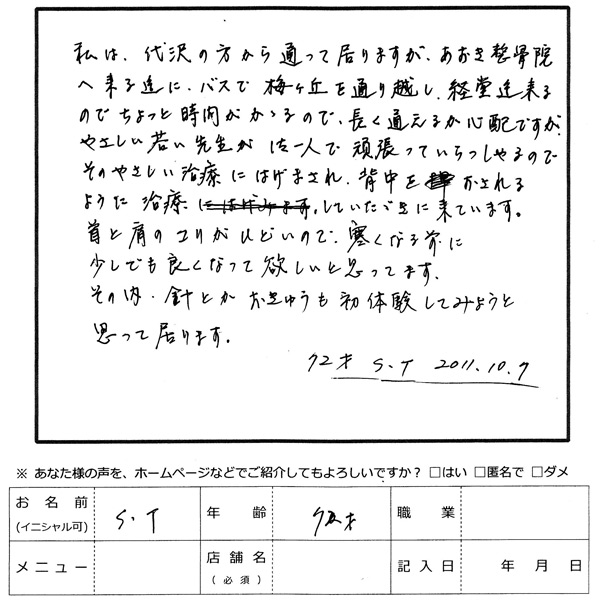 私は、代沢の方から通って居りますが、あおき整骨院
へ来る迄に、バスで梅ヶ丘を通り越し、経堂迄来る
のでちょっと時間がかゝるので、長く通えるか心配ですが、
やさしい若い先生が お一人で頑張っていらっしゃるので
そのやさしい治療にはげまされ、背中を おされる
ように治療にはげみます。していただきに来ています。
首と肩のコリがひどいので、寒くなる前に
少しでも良くなって欲しいと思ってます。
その内、針とか おきゅうも初体験してみようと
思って居ります。
72才 S.T 2011.10.7
※ あなた様の声を、ホームページなどでご紹介してもよろしいですか？ □はい □匿名で □ダメ
お名前 (イニシャル可) S.T 年齢 72才 職業
メニュー 店舗名 (必須) 記入日 年 月 日